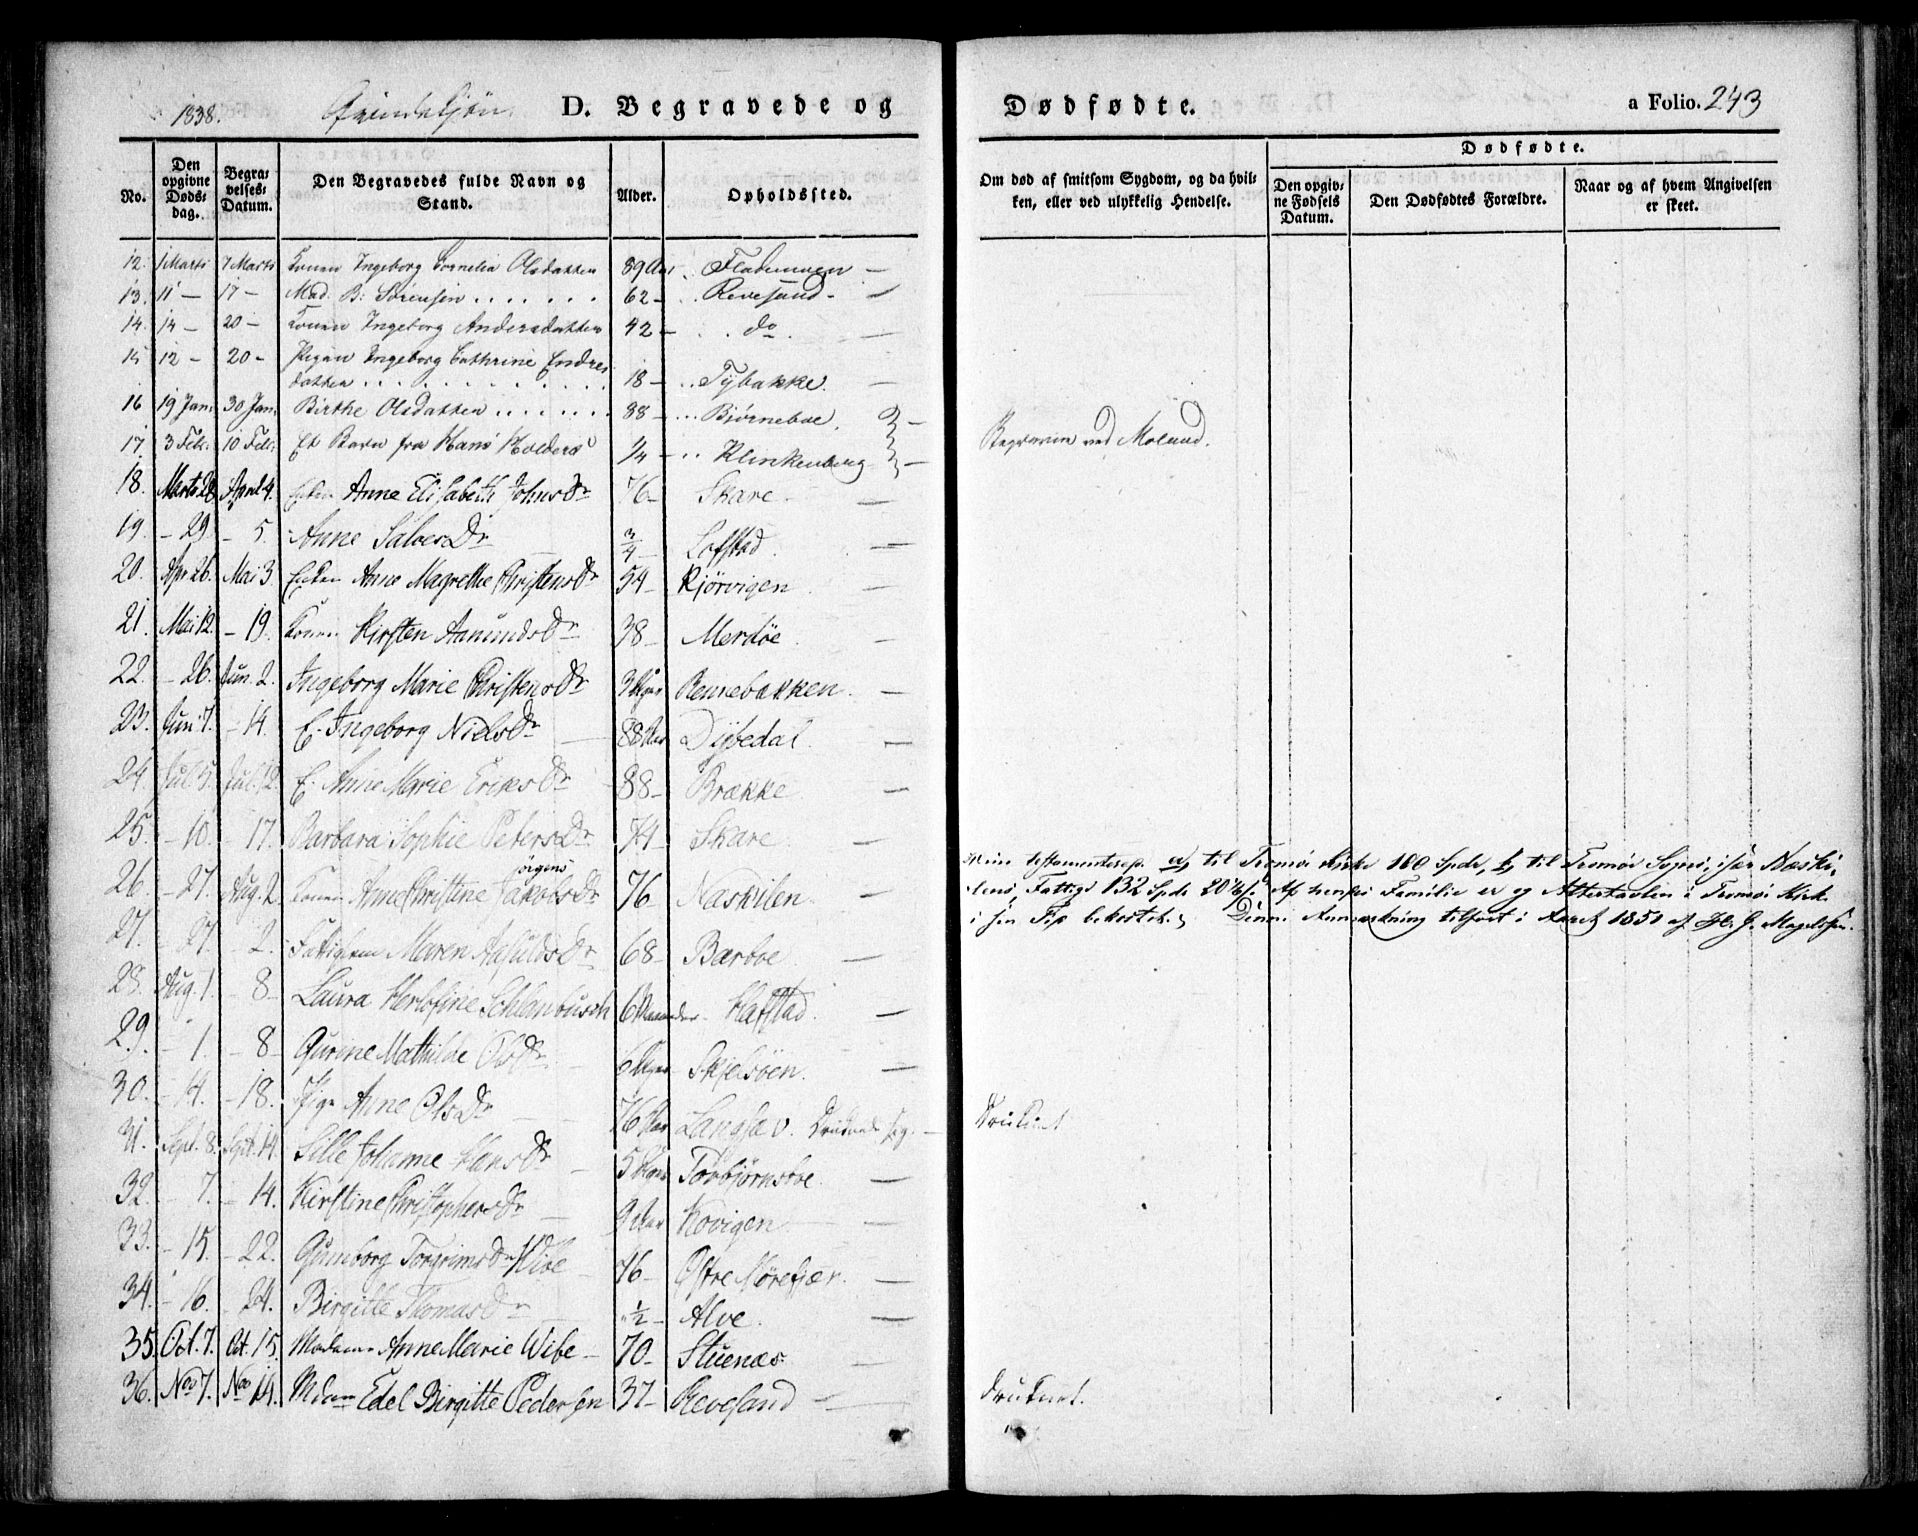 1838. Qvindekjøn. D. Begravede og Dødfødte. a Folio. 243
No. Den opgivne Døds-dag. Begra-velses-Datum. Den Begravedes fulde Navn og Stand. Alder. Opholdssted. Om død af smitsom Sygdom, og da hvil-ken, eller ved ulykkelig Hendelse. Dødfødte. Den opgiv-ne Fødsels Datum. Den Dødfødtes Forældre. Naar og af hvem Angivelsen er skeet.
12. 1 Marts 7 Marts Konen Ingeborg Cornelia Olsdatter 89 Aar Flademoen —
13. 11 — 17 — Mad. B: Sørensen . . . . . . 62 — Revesand —
14. 14 — 20 — Konen Ingeborg Andersdatter 42 — do —
15 12 — 20 — Pigen Ingeborg Cathrine Endres
datter . . . . . . 18 — Tybakke. —
16 19 Jan. 30 Jan. Birthe Olsdatter . . . . . . 88 — Bjørneboe. —
17. 3 Feb. 10 Feb. Et Barn fra Hans Holders 1/4 — Klinkenberg — Begraven ved Moland.
18. Marts 28 April 4. Enken Anne Elisabeth Johnsdr 76 — Skare —
19. — 29. — 5. Anne Salvesdr 3/4 — Lofstad. —
20. Apr 26. Mai 3 Enken Anne Magrethe Christensdr 54 — Kjørvigen
21. Mai 12. — 19. Konen Kirsten Aanundsdr 38 — Merdøe
22. — 26. Jun. 2. Ingeborg Marie Christensdr 3 Uger Rennebakken. —
23. Juni 7. — 14. E. Ingeborg Nielsdr — 88 Aar Dybedal. —
24. Jul. 5. Jul. 12. E. Anne Marie Eriksdr 88 — Brække —
25. — 10. — 17. Barbara Sophie Petersdr 74 — Skare —
Jørgens
26. — 27. Aug. 2. Konen Anne Christine Jakobsdr 76 — Naskilen — til Tromø Kirke 100 Spdr, b, til Tromø Sogns, især Naski,
lens, Fattige 132 Spdr 20 ß. Af hendes Familie er og Altertavlen i Tromø Kirke
27. — 27. — 2. Maren Aasuldsdr 68 — Barboe — i sin Tid bekostet. Denne Anmerkning tilført i Aaret 1851 af
28. Aug. 1. — 8 — Laura Herlofine Schlanbusch 6 Maaneder Hafstad. —
29. — 1. — 8 — Gurine Mathilde Olsdr. — 6 Uger Skjelsøen. —
30. — 4. — 18. Pige Anne Olsdr — 76 Aar Langsæv. — Druknet
31. Sept. 8. Sept. 14. Sille Johanne Hansdr — 5 Uger Torbjørnsboe. —
32. — 7. — 14. Kirstine Christophersdr — 9 Aar Kovigen —
33. — 15. — 22. Gunborg Torgrimsdr Wibe — 76 — Østre Mørefjær. —
34. — 16. — 24. Birgitte Thomasdr — 1/2 — Alve. —
35. Oct. 7. Oct. 15. Madame Anne Marie Wibe — 70 — Stuenæs —
36. Nov 7. Nov 14. Mdme Edel Birgitte Pedersen 37 — Revesand — druknet.